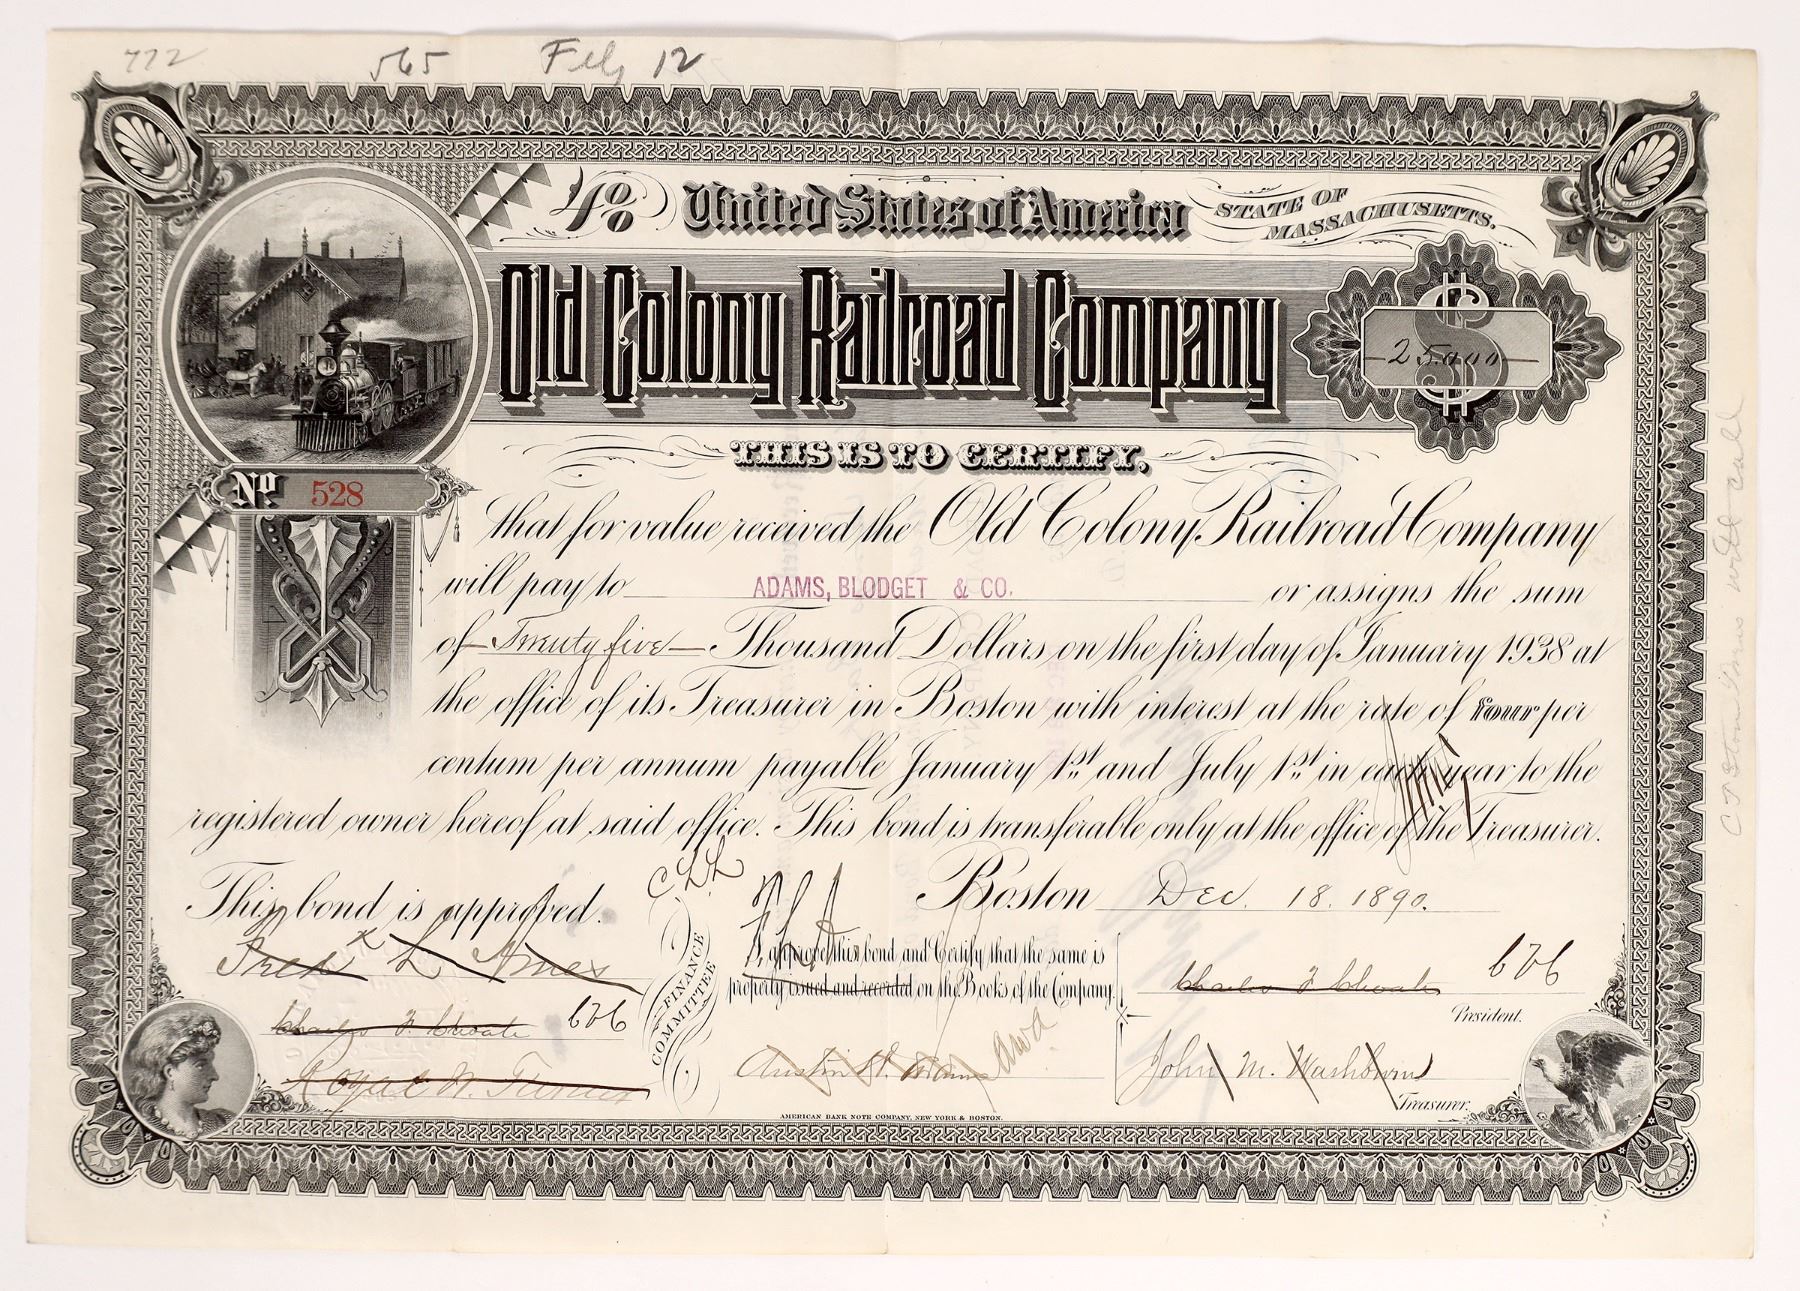 772 565 Feby 12
4% United States of America STATE OF MASSACHUSETTS.
Old Colony Railroad Company
$ 25,000
THIS IS TO CERTIFY,
No 528
that for value received the Old Colony Railroad Company
will pay to ADAMS, BLODGET & CO. or assigns the sum
of Twenty five Thousand Dollars on the first day of January 1938 at
the office of its Treasurer in Boston with interest at the rate of four per
centum per annum payable January 1st and July 1st in each year to the
registered owner hereof at said office. This bond is transferable only at the office of the Treasurer.
This bond is approved.
Boston Dec. 18. 1890.
Fred L. Ames
Charles F. Choate
Royal W. Turner
FINANCE COMMITTEE
I, approve this bond and Certify that the same is
properly issued and recorded on the Books of the Company.
Charles F. Choate
President.
John M. Washburn
Treasurer.
AMERICAN BANK NOTE COMPANY, NEW YORK & BOSTON.